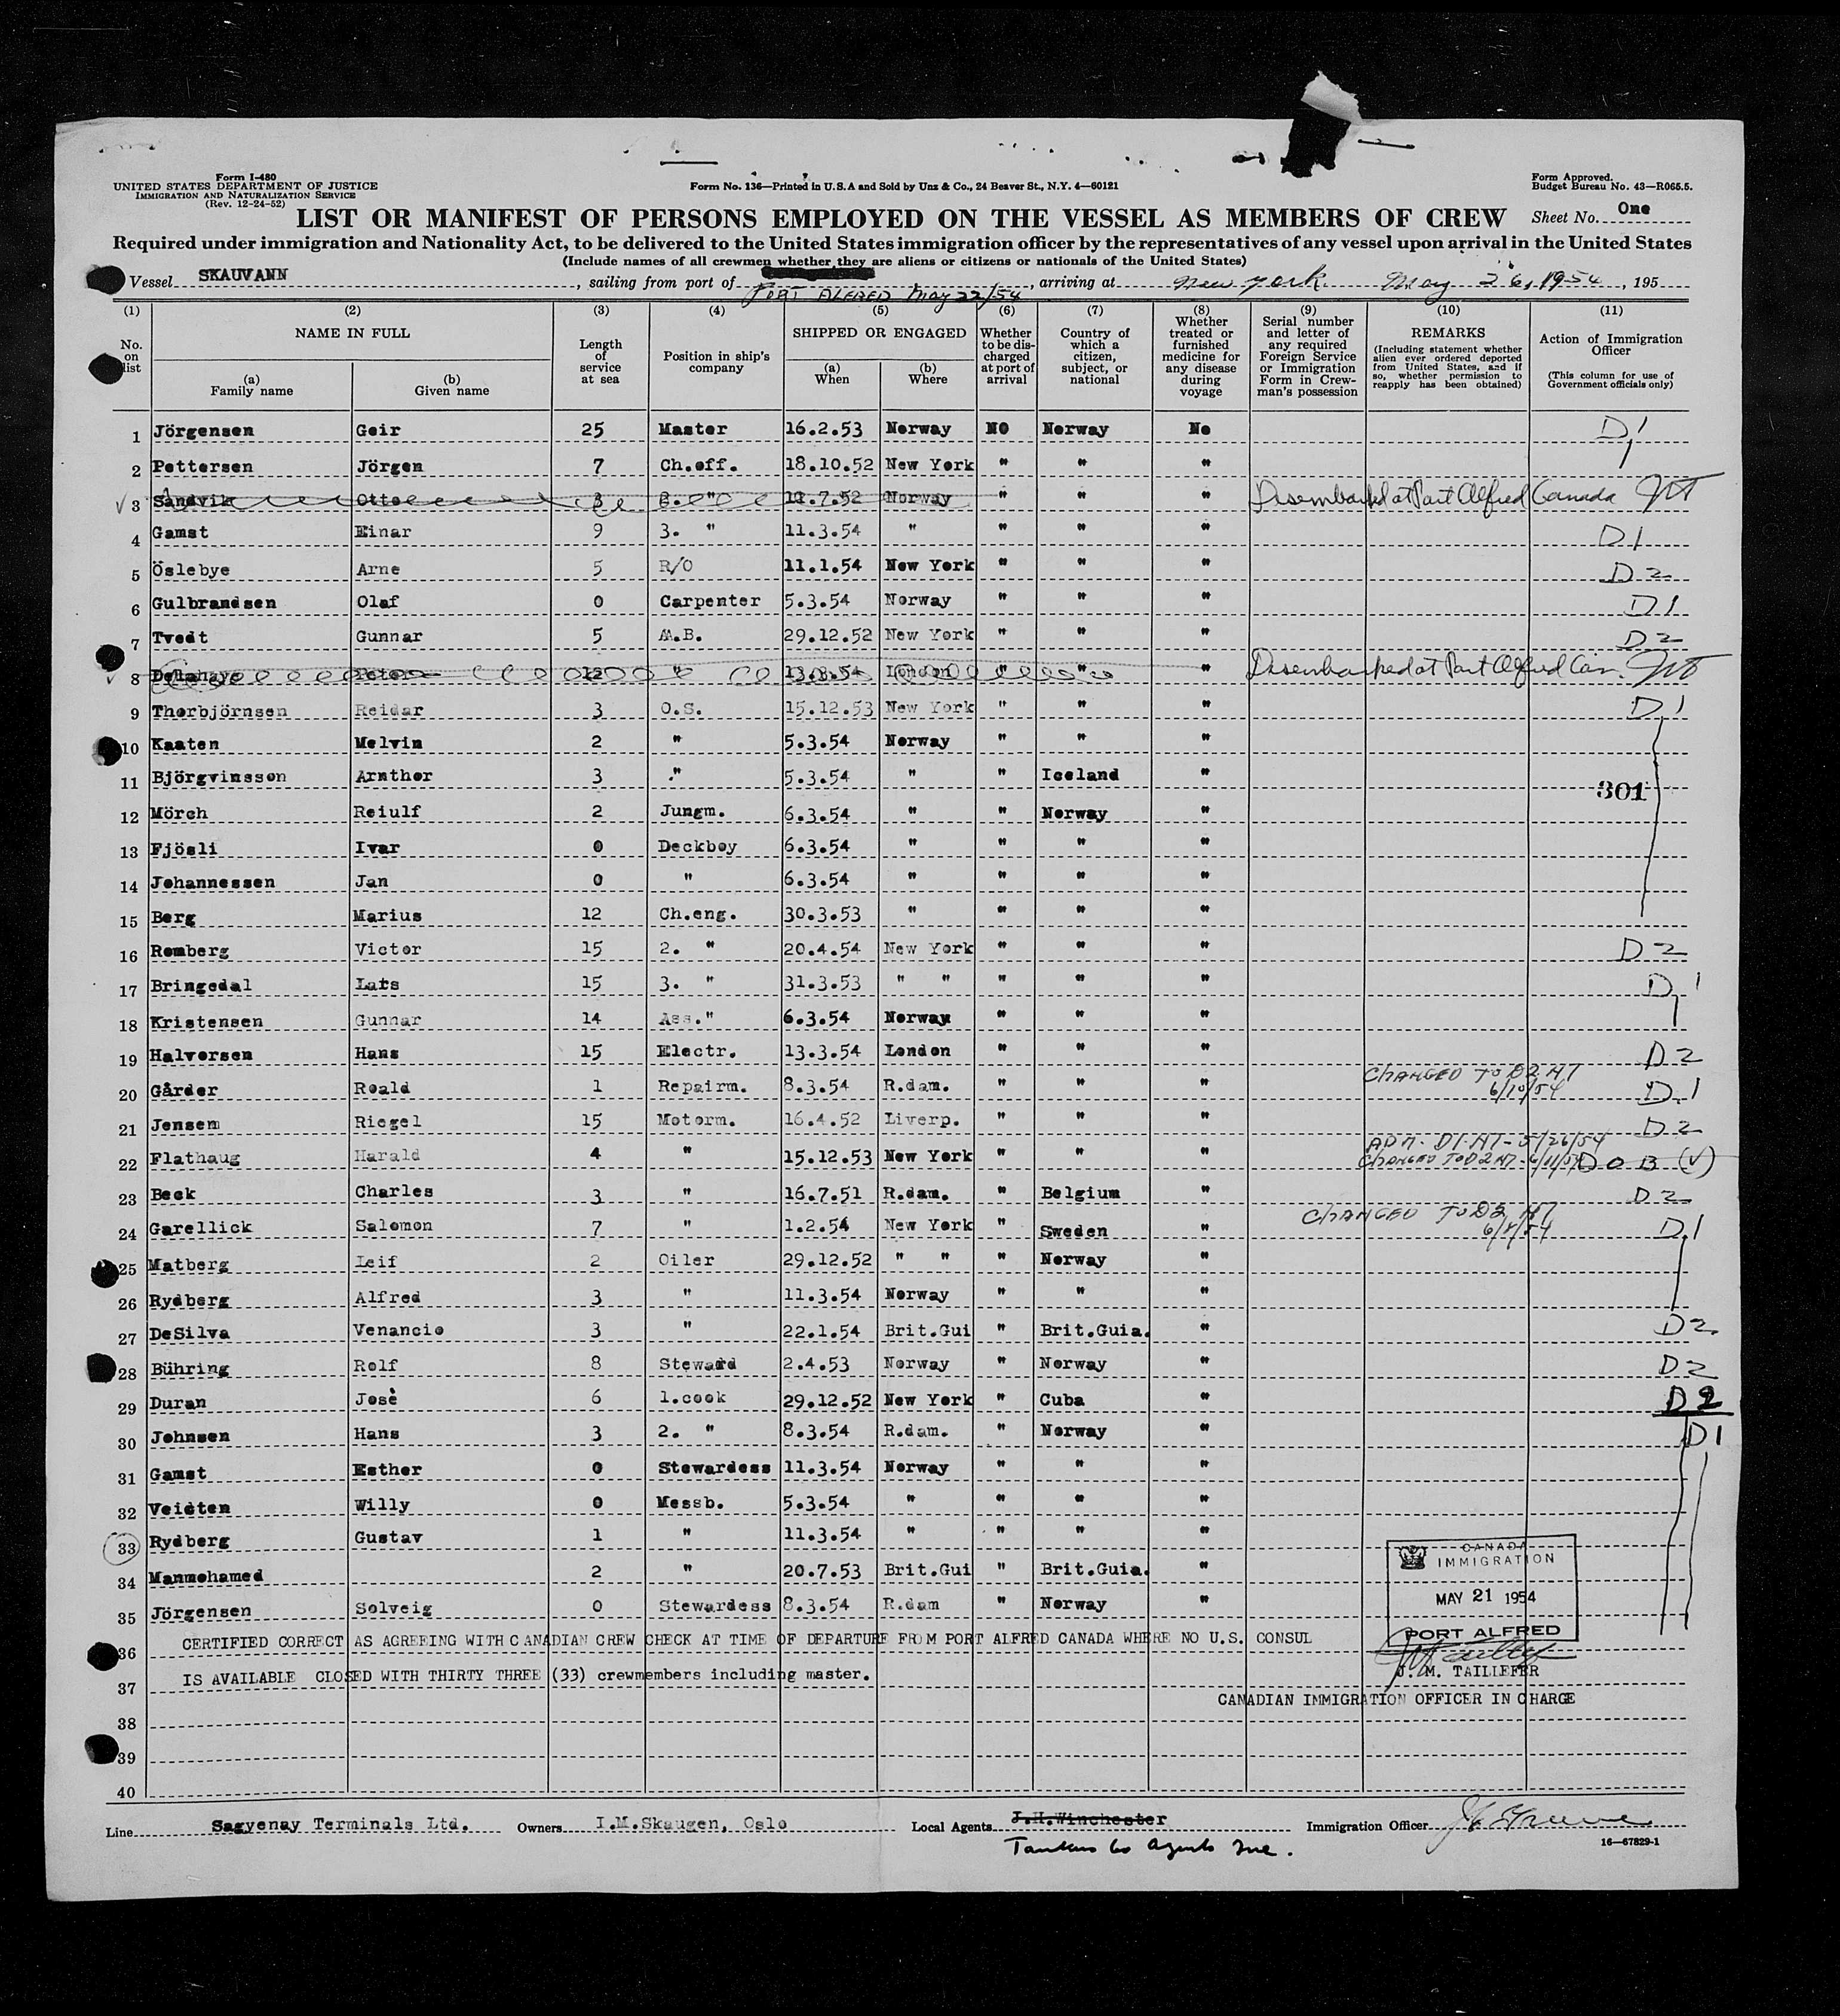 Form I-480
UNITED STATES DEPARTMENT OF JUSTICE
IMMIGRATION AND NATURALIZATION SERVICE
(Rev. 12-24-52)
Form No. 136—Printed in U.S.A and Sold by Unz & Co., 24 Beaver St., N.Y. 4—60121
Form Approved.
Budget Bureau No. 43—R065.5.
LIST OR MANIFEST OF PERSONS EMPLOYED ON THE VESSEL AS MEMBERS OF CREW
Sheet No. One
Required under immigration and Nationality Act, to be delivered to the United States immigration officer by the representatives of any vessel upon arrival in the United States
(Include names of all crewmen whether they are aliens or citizens or nationals of the United States)
Vessel SKAUVANN, sailing from port of PORT ALFRED May 22/54, arriving at New York May 26, 1954, 195
(1) No. on list
(2) NAME IN FULL (a) Family name (b) Given name
(3) Length of service at sea
(4) Position in ship's company
(5) SHIPPED OR ENGAGED (a) When (b) Where
(6) Whether to be discharged at port of arrival
(7) Country of which a citizen, subject, or national
(8) Whether treated or furnished medicine for any disease during voyage
(9) Serial number and letter of any required Foreign Service or Immigration Form in Crewman's possession
(10) REMARKS (Including statement whether alien ever ordered deported from United States, and if so, whether permission to reapply has been obtained)
(11) Action of Immigration Officer (This column for use of Government officials only)
1 Jörgensen Geir 25 Master 16.2.53 Norway NO Norway No D1
2 Pettersen Jörgen 7 Ch.off. 18.10.52 New York " " "
3 Sandvik Otto 3 2. " 12.7.52 Norway " " " Disembarked at Port Alfred Canada JMT
4 Gamst Einar 9 3. " 11.3.54 " " " " D1
5 Öslebye Arne 5 R/O 11.1.54 New York " " " D2
6 Gulbrandsen Olaf 0 Carpenter 5.3.54 Norway " " " D1
7 Tvedt Gunnar 5 M.B. 29.12.52 New York " " " D2
8 Delahaye 12 " 13.3.54 London " " " Disembarked at Port Alfred Can. JMT
9 Thorbjörnsen Reidar 3 O.S. 15.12.53 New York " " " D1
10 Kaaten Melvin 2 " 5.3.54 Norway " " "
11 Björgvinsson Arnthor 3 " 5.3.54 " " Iceland " 301
12 Mörch Reiulf 2 Jungm. 6.3.54 " " Norway "
13 Fjösli Ivar 0 Deckboy 6.3.54 " " " "
14 Johannessen Jan 0 " 6.3.54 " " " "
15 Berg Marius 12 Ch.eng. 30.3.53 " " " "
16 Romberg Victor 15 2. " 20.4.54 New York " " " D2
17 Bringedal Lars 15 3. " 31.3.53 " " " " " D1
18 Kristensen Gunnar 14 Ass." 6.3.54 Norway " " "
19 Halvorsen Hans 15 Electr. 13.3.54 London " " " D2
20 Gårder Roald 1 Repairm. 8.3.54 R.dam. " " " CHANGED TO D2 HT 6/10/54 D.1
21 Jensen Riegel 15 Motorm. 16.4.52 Liverp. " " " D2
22 Flathaug Harald 4 " 15.12.53 New York " " " ADM. D1. HT - 5/26/54 CHANGED TO D2 HT - 6/11/54 D O B (✓)
23 Beck Charles 3 " 16.7.51 R.dam. " Belgium " D2
24 Garellick Salomon 7 " 1.2.54 New York " Sweden " CHANGED TO D2 HT 6/8/54 D.1
25 Matberg Leif 2 Oiler 29.12.52 " " " Norway "
26 Rydberg Alfred 3 " 11.3.54 Norway " " "
27 DeSilva Venancio 3 " 22.1.54 Brit.Gui " Brit.Guia. " D2.
28 Bühring Rolf 8 Steward 2.4.53 Norway " Norway " D2
29 Duran Josè 6 1.cook 29.12.52 New York " Cuba " D2
30 Johnsen Hans 3 2. " 8.3.54 R.dam. " Norway " D1
31 Gamst Esther 0 Stewardess 11.3.54 Norway " " "
32 Veidten Willy 0 Messb. 5.3.54 " " " "
33 Rydberg Gustav 1 " 11.3.54 " " " "
34 Manmohamed 2 " 20.7.53 Brit.Gui " Brit.Guia. "
35 Jörgensen Solveig 0 Stewardess 8.3.54 R.dam " Norway "
CANADA
IMMIGRATION
MAY 21 1954
PORT ALFRED
36 CERTIFIED CORRECT AS AGREEING WITH CANADIAN CREW CHECK AT TIME OF DEPARTURE FROM PORT ALFRED CANADA WHERE NO U.S. CONSUL
37 IS AVAILABLE CLOSED WITH THIRTY THREE (33) crewmembers including master.
J. M. TAILLEFER
CANADIAN IMMIGRATION OFFICER IN CHARGE
38
39
40
Line Sagyenay Terminals Ltd. Owners I.M.Skaugen, Oslo Local Agents J.H.Winchester Immigration Officer
Tankers Co Agents Inc.
16—67829-1